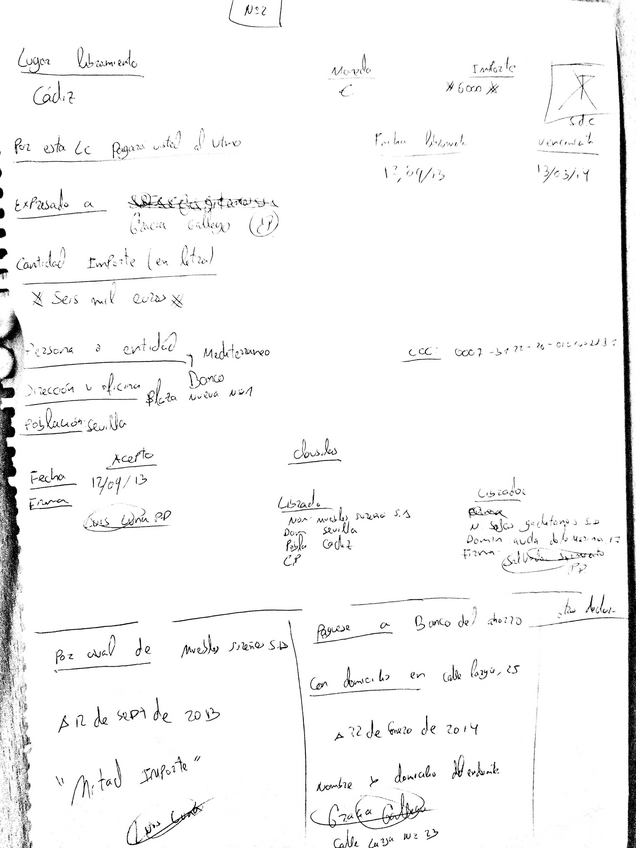 Nº2
Lugar libramiento
Cádiz
Moneda
€
Importe
※ 6000 ※
Por esta Lc Pagara usted al vtmo
Fecha libramiento
12/09/13
vencimiento
12/03/14
Expresado a
Gracia Gallego (CP)
Cantidad Importe (en letra)
※ Seis mil euros ※
Persona o entidad
Mediterraneo
Banco
CCC: 0007
Dirección u oficina Plaza Nueva Nº1
Población: Sevilla
Acepto
Fecha 12/09/13
Firma
Luis Luna PP
Clausulas
Librado
Nom: Muebles Sureños S.A
Dom Sevilla
Pobla Cadiz
CP
Librador
N Sofas gaditanos S.A
Domin
Firma:
PP
Por aval de Muebles Sureños S.A
A 12 de Sept de 2013
"Mitad Importe"
Luis Luna
Páguese a Banco del ahorro
Con domicilio en calle 25
A 22 de Enero de 2014
Nombre y domicilio del endosante
Gracia Gallego
Calle Nº 23